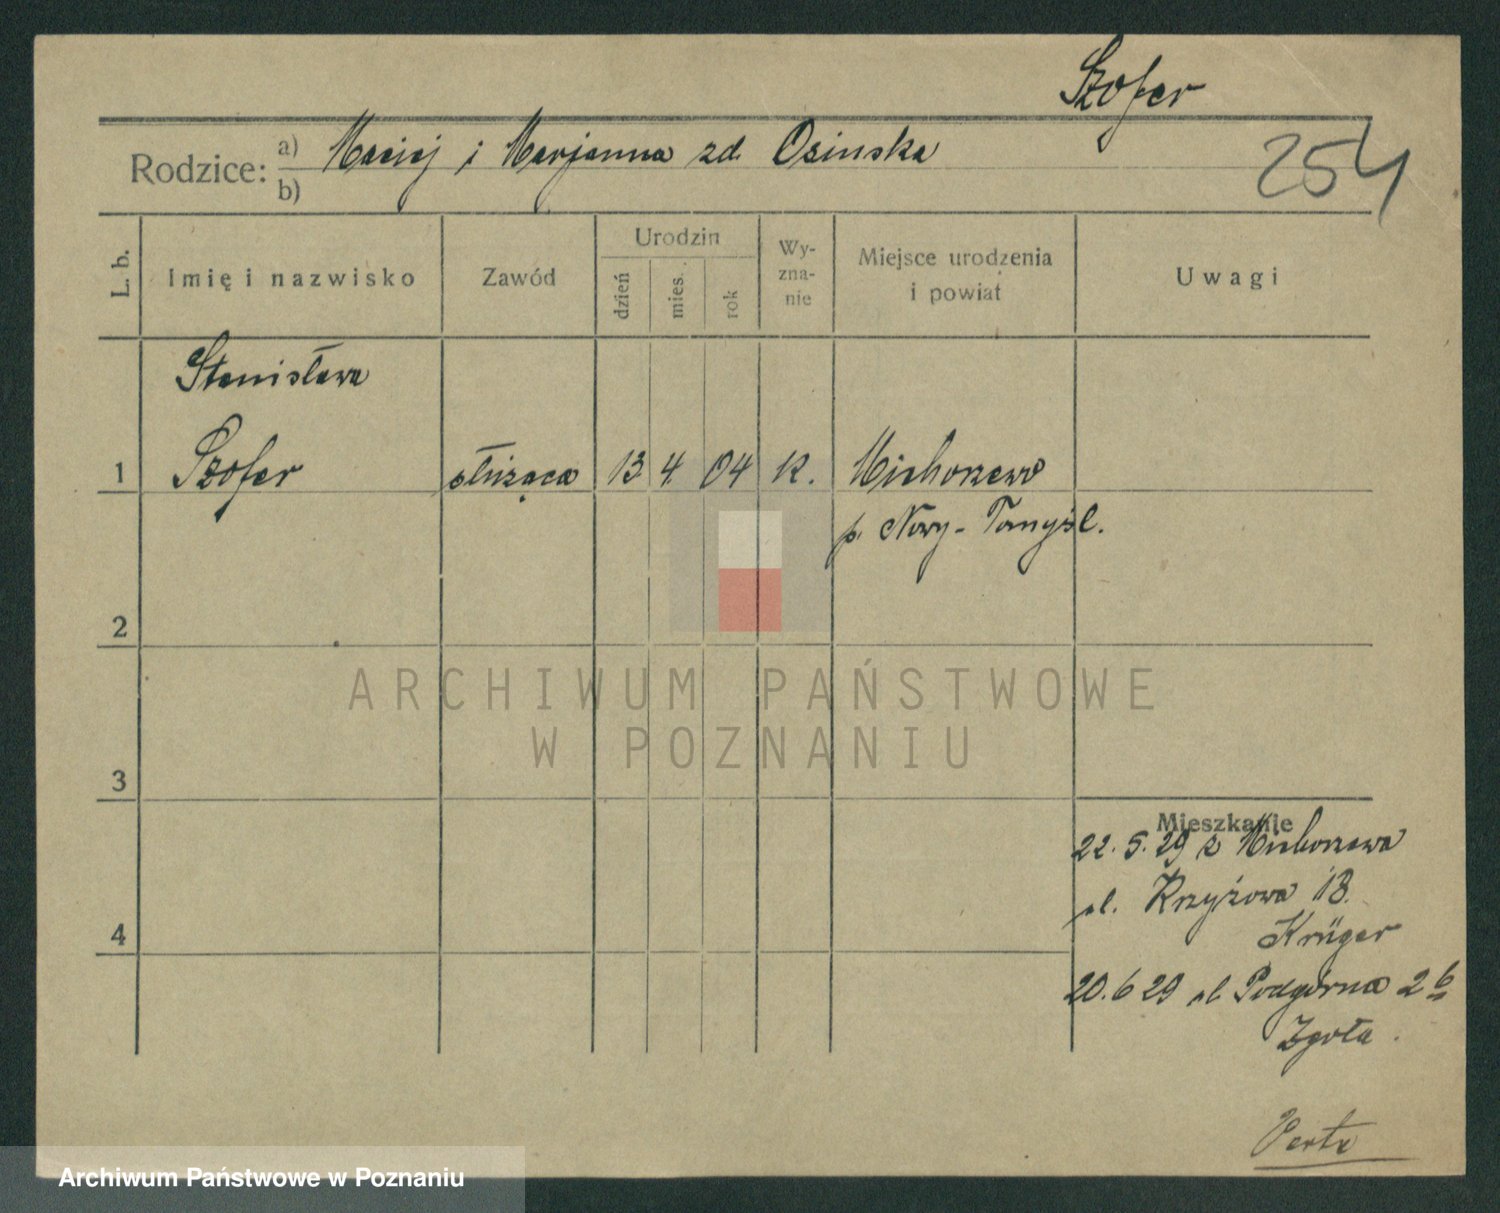 Szofer
254
Rodzice: a) Maciej i Marjanna zd. Osinska
b)
L. b.
Imię i nazwisko
Zawód
Urodzin
dzień
mies.
rok
Wy-
zna-
nie
Miejsce urodzenia
i powiat
Uwagi
Stanisława
1 Szofer służąca 13 4. 04 k. Michorzewo
p. Nowy-Tomyśl.
2
3
4
Mieszkanie
22.5.29 z Michorzewa
ul. Krzyżowa 13.
Krüger
20.6 29 ul Podgórna 2 b
Zgoła.
Verte
ARCHIWUM PAŃSTWOWE
W POZNANIU
Archiwum Państwowe w Poznaniu